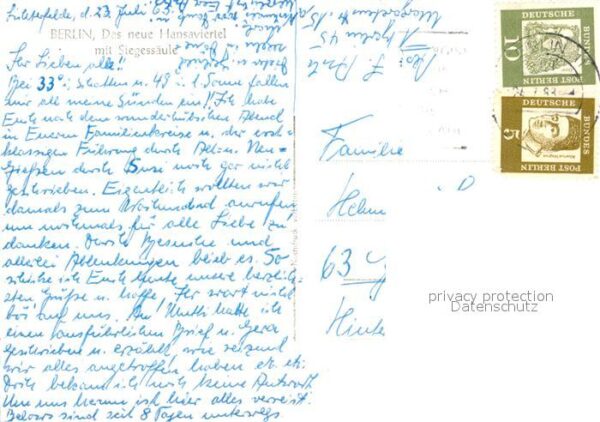 Lichterfelde, d. 23. Juli 63
BERLIN, Das neue Hansaviertel
mit Siegessäule
Ihr Lieben alle!!
Bei 33° i. Schatten u. 49 i. d. Sonne fallen
mir all meine Sünden ein! Ich habe
Euch noch dem wunderhübschen Abend
in Eurem Familienkreise u. der erst-
klassigen Führung durch Alt- u. Neu-
Gießen durch Susi noch gar nicht
geschrieben. Eigentlich wollten wir
damals zum anrufen,
um nochmals für alle Liebe zu
danken. Durch Besuche und
allerlei Ablenkungen blieb es. So
schicke ich Euch heute unsere herzlich-
sten Grüße u. hoffe, Ihr seid nicht
bös auf uns. An Mutti hatte ich
einen ausführlichen Brief n. Gera
geschrieben u. erzählt, wie reizend
wir alles angetroffen haben etc. etc.
Doch bekam ich noch keine Antwort.
Um uns herum ist hier alles verreist.
sind seit 8 Tagen unterwegs
Abs:
Berlin 45
Familie
Helm
63 G
Hinter
DEUTSCHE
BUNDES
POST BERLIN
10
DEUTSCHE
BUNDES
POST BERLIN
5
privacy protection
Datenschutz